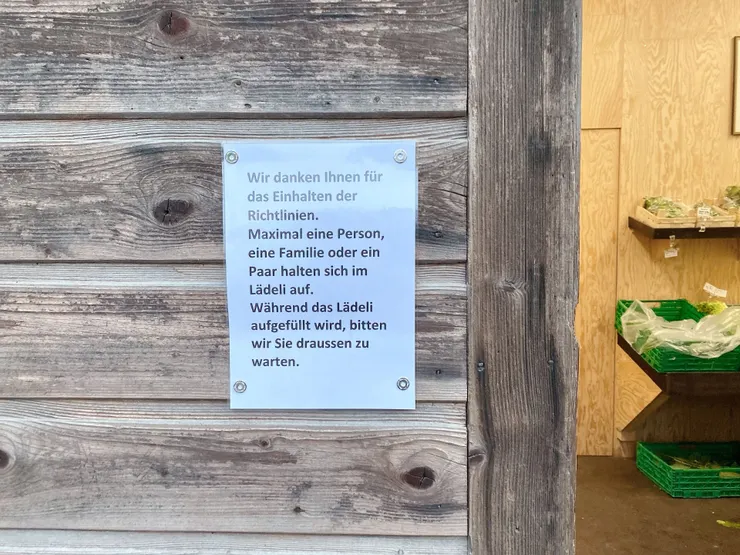 Wir danken Ihnen für
das Einhalten der
Richtlinien.
Maximal eine Person,
eine Familie oder ein
Paar halten sich im
Lädeli auf.
Während das Lädeli
aufgefüllt wird, bitten
wir Sie draussen zu
warten.